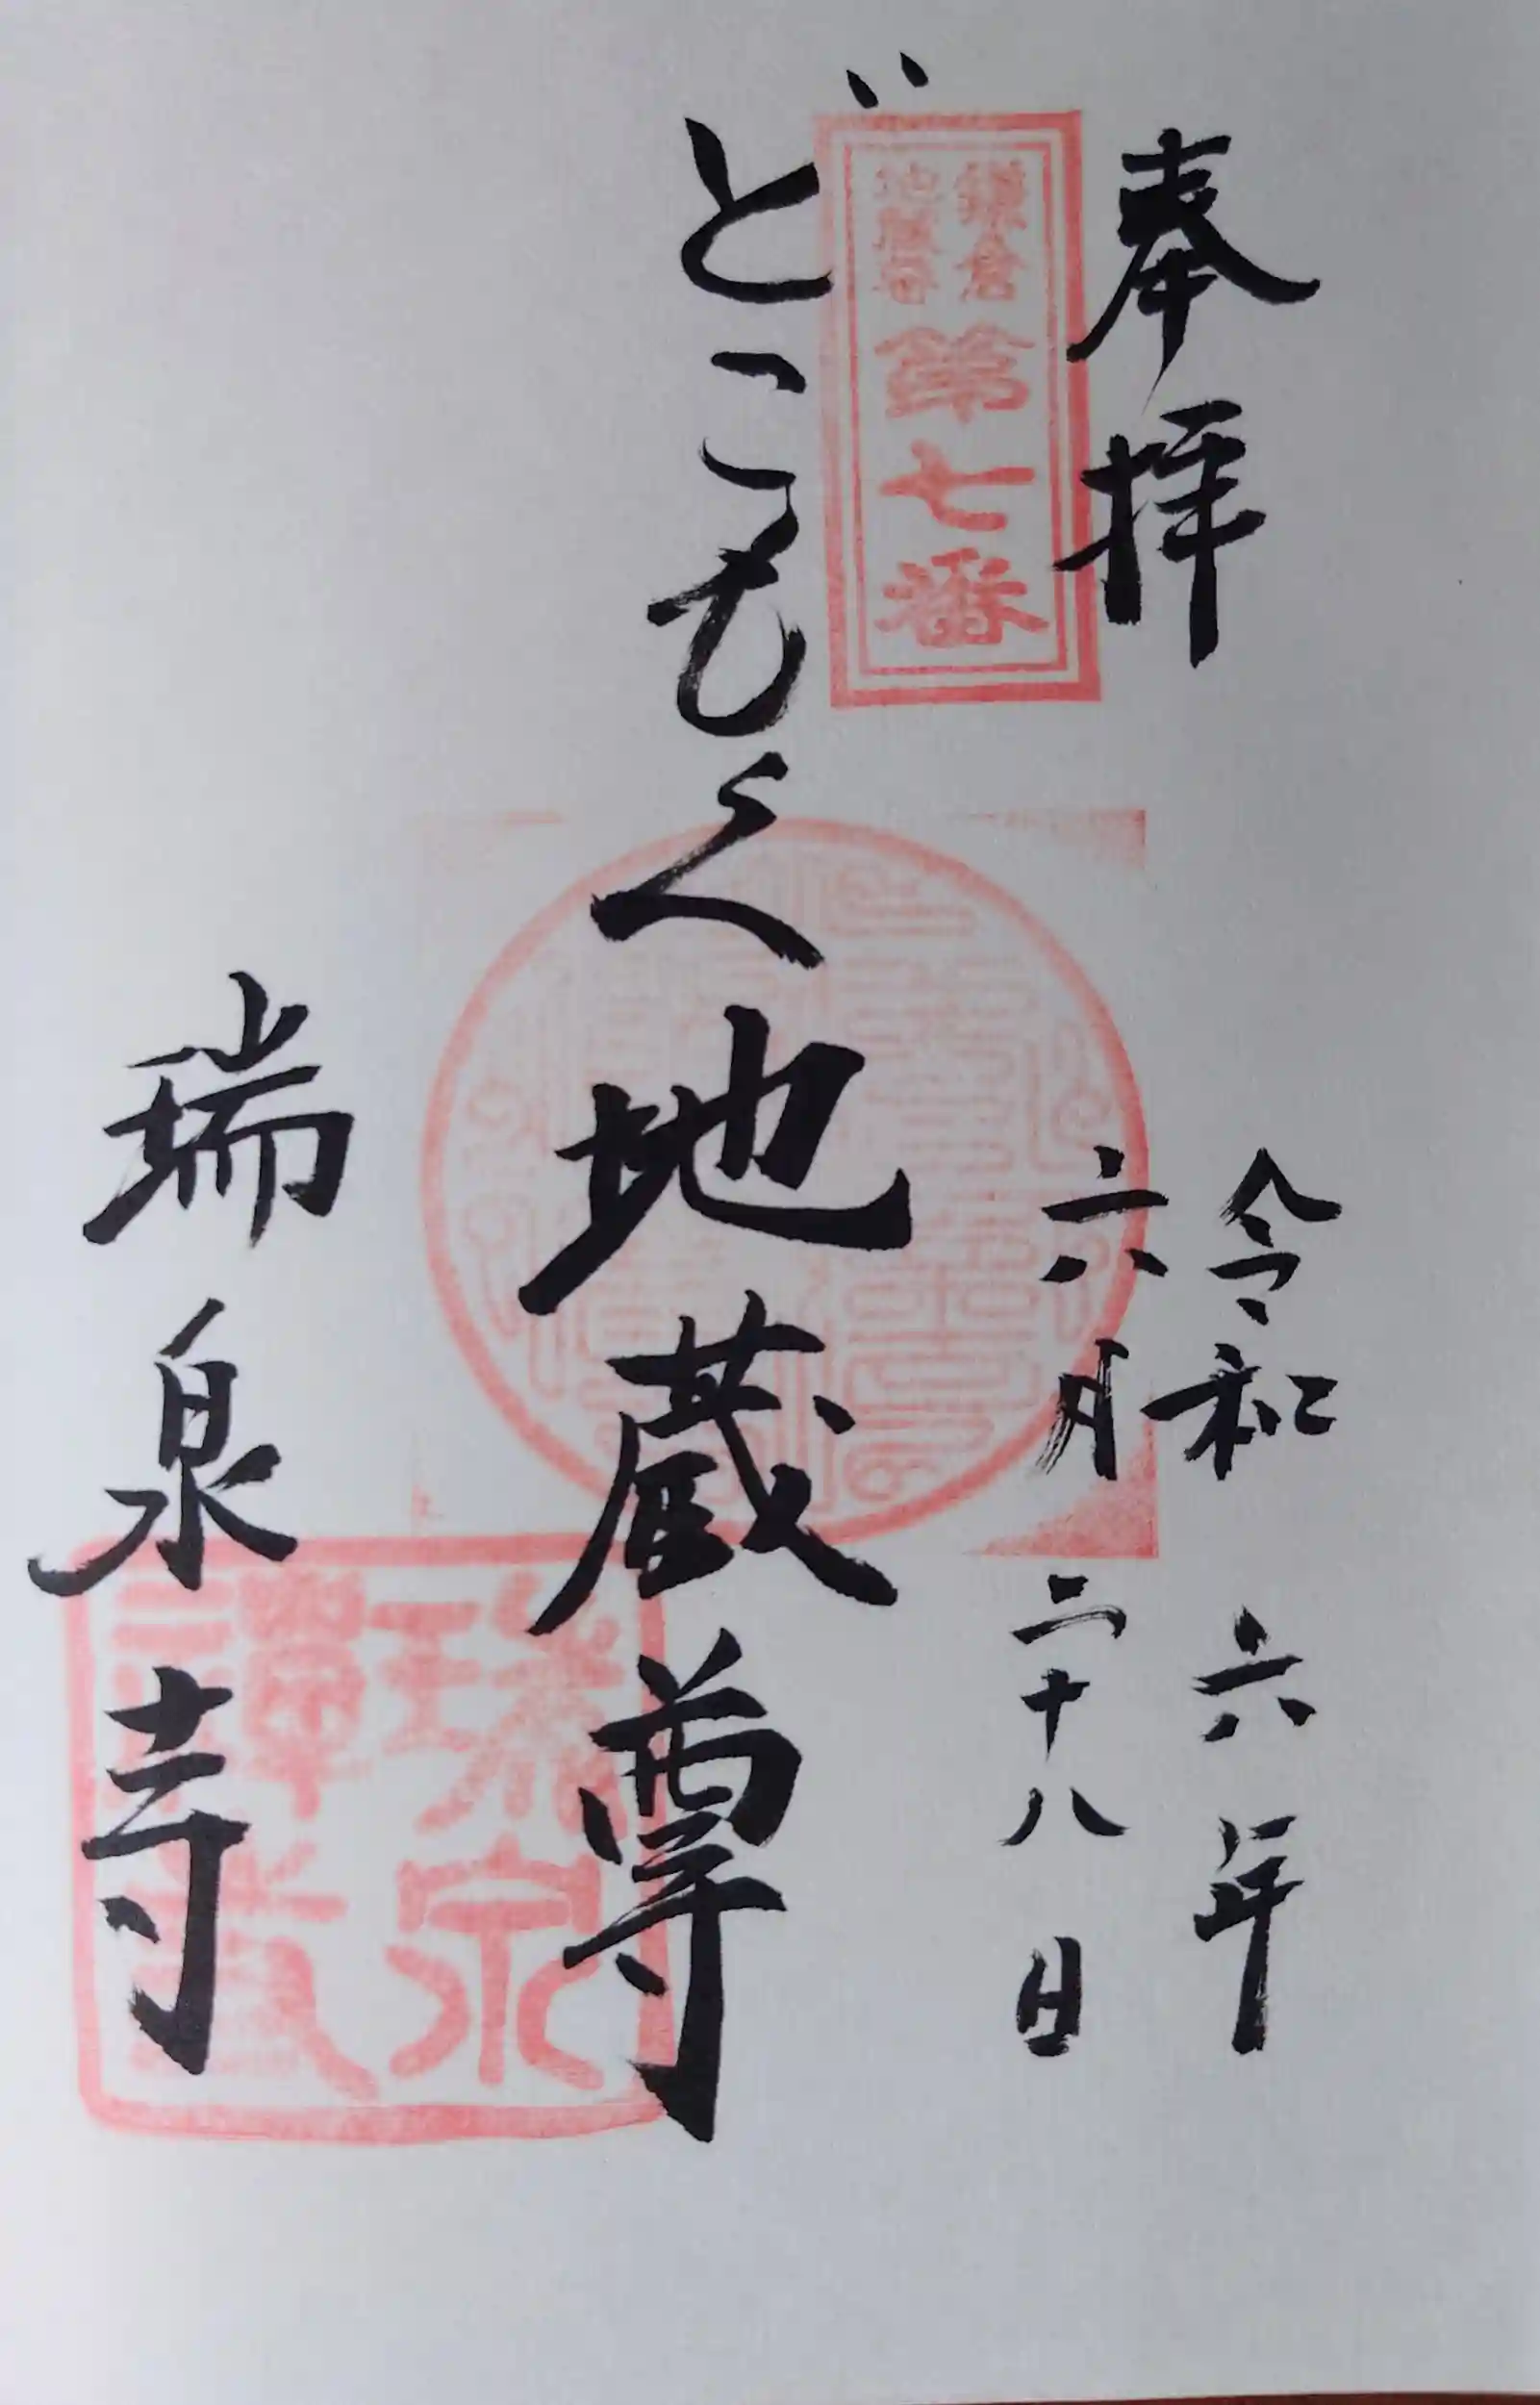 奉拝
令和六年
六月二十八日
鎌倉
地蔵尊
第七番
どこもく地蔵尊
瑞泉寺
瑞泉